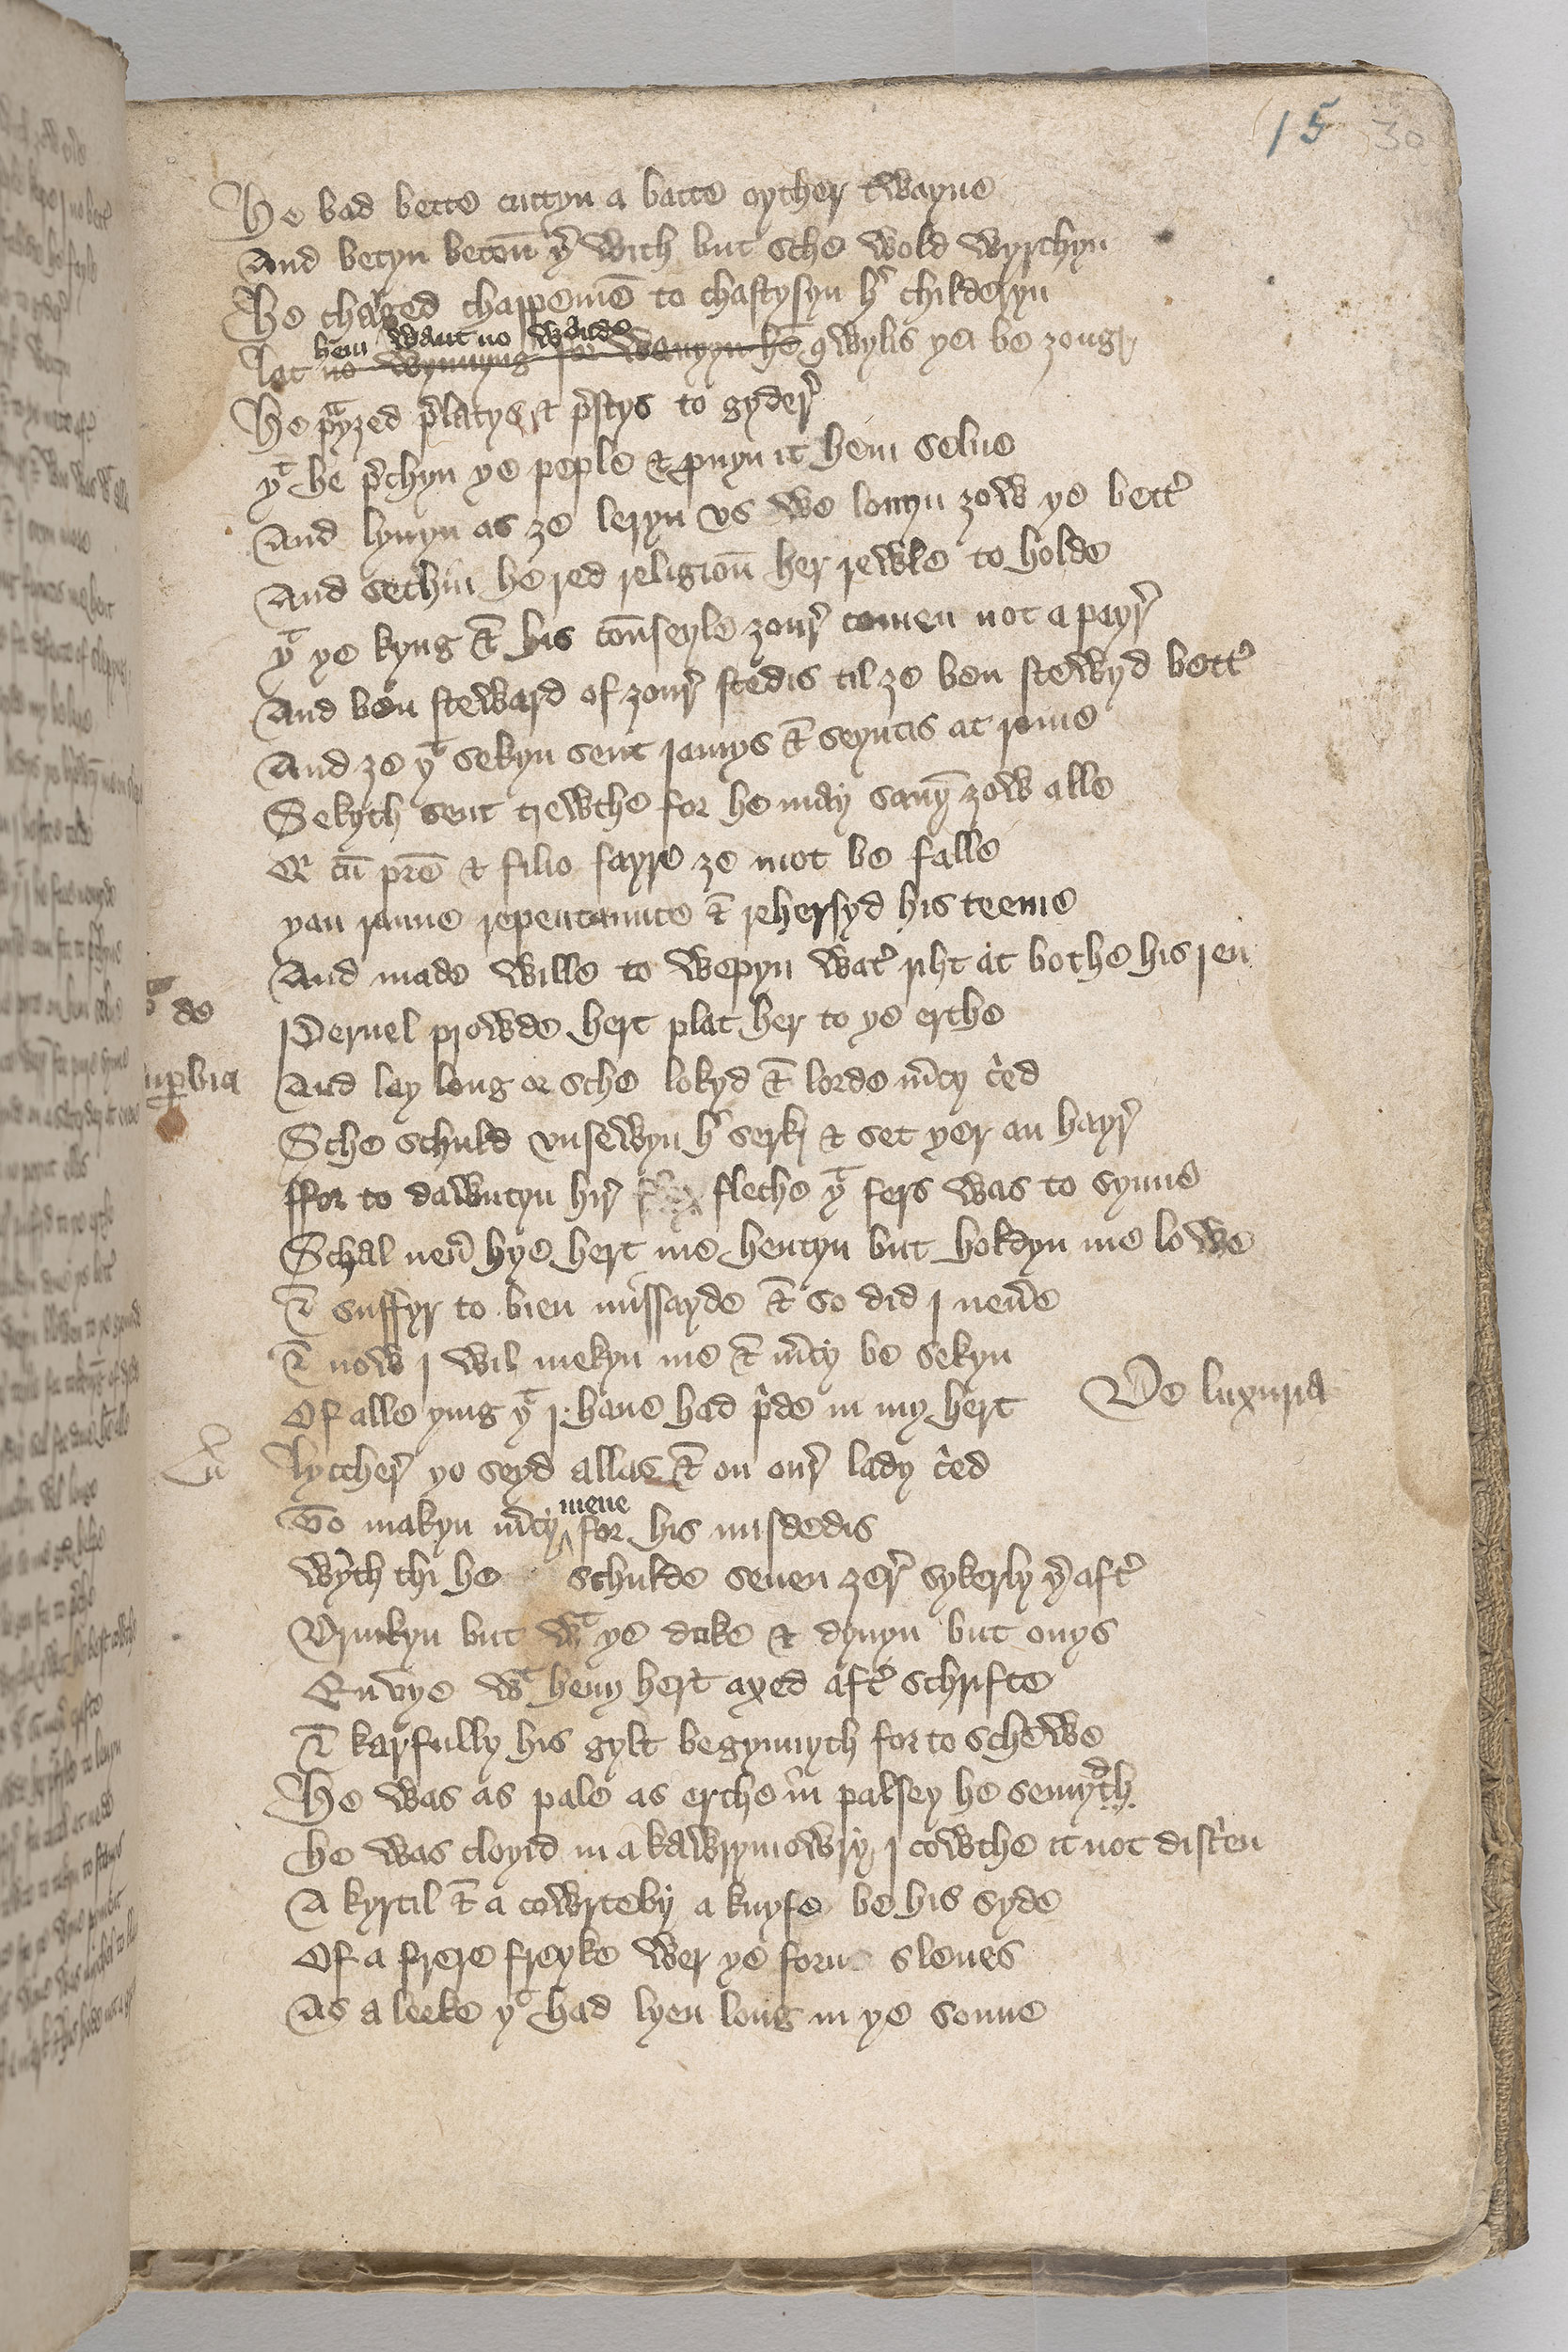 15 30
He bad bette cuttyn a batte oyther twayne
And betyn betoun yer with but sche wold wyrchyn
He charged chapemen to chastysyn her childeryn
hem want no wande
lat no wynnyng for wanyyn hem qwylis yei be zong
He prayzed prelatys & prestys to gyder
yt he prechyn ye peple & prouyn it hem selue
And lyuyn as ze leryn vs we louyn zow ye better
And sethin he red religioun her rewle to holde
yt ye kyng & his counseyle zour comen not apayr
And ben steward of zour stedis til ze ben stewyd better
And ze yt sekyn sent iamys & seyntis at rome
Sekyth sent trewthe for he may sauyn zow alle
Qi cum patre & filio fayre ze mot be falle
yan ranne repentaunce & rehersyd his teeme
And made wille to wepyn water riht at bothe his ien
de
superbia
Pernel prowde hert plat her to ye erthe
And lay long or sche lokyd & lorde mercy cried
Sche schuld vnsewyn her serk & set yer an hayr
ffor to dawntyn hir flesche yt fers was to synne
Schal neuer hye hert me hentyn but holdyn me lowe
& suffyr to bien missayde & so did I neuere
& now I wil mekyn me & mercy be sekyn
Of alle ying yt I haue had pride in my hert
De luxuria
lyccher yo seyd allas & on our lady cried
To makyn mercy for his misdedis
mene
Wyth thi he schulde seuen zer sykerly yer after
Drinkyn but wt ye duke & dynyn but onys
Enuye wt heuy hert axed after schrifte
& karfully his gylt begynnyth for to schewe
He was as pale as erthe in palsey he semyth
he was cloyid in a kawrymowry I cowthe it not discrien
A kyrtil & a cowrteby a knyfe be his syde
Of a frere freyke wer ye forne sleues
As a leeke yt had lyen long in ye sonne